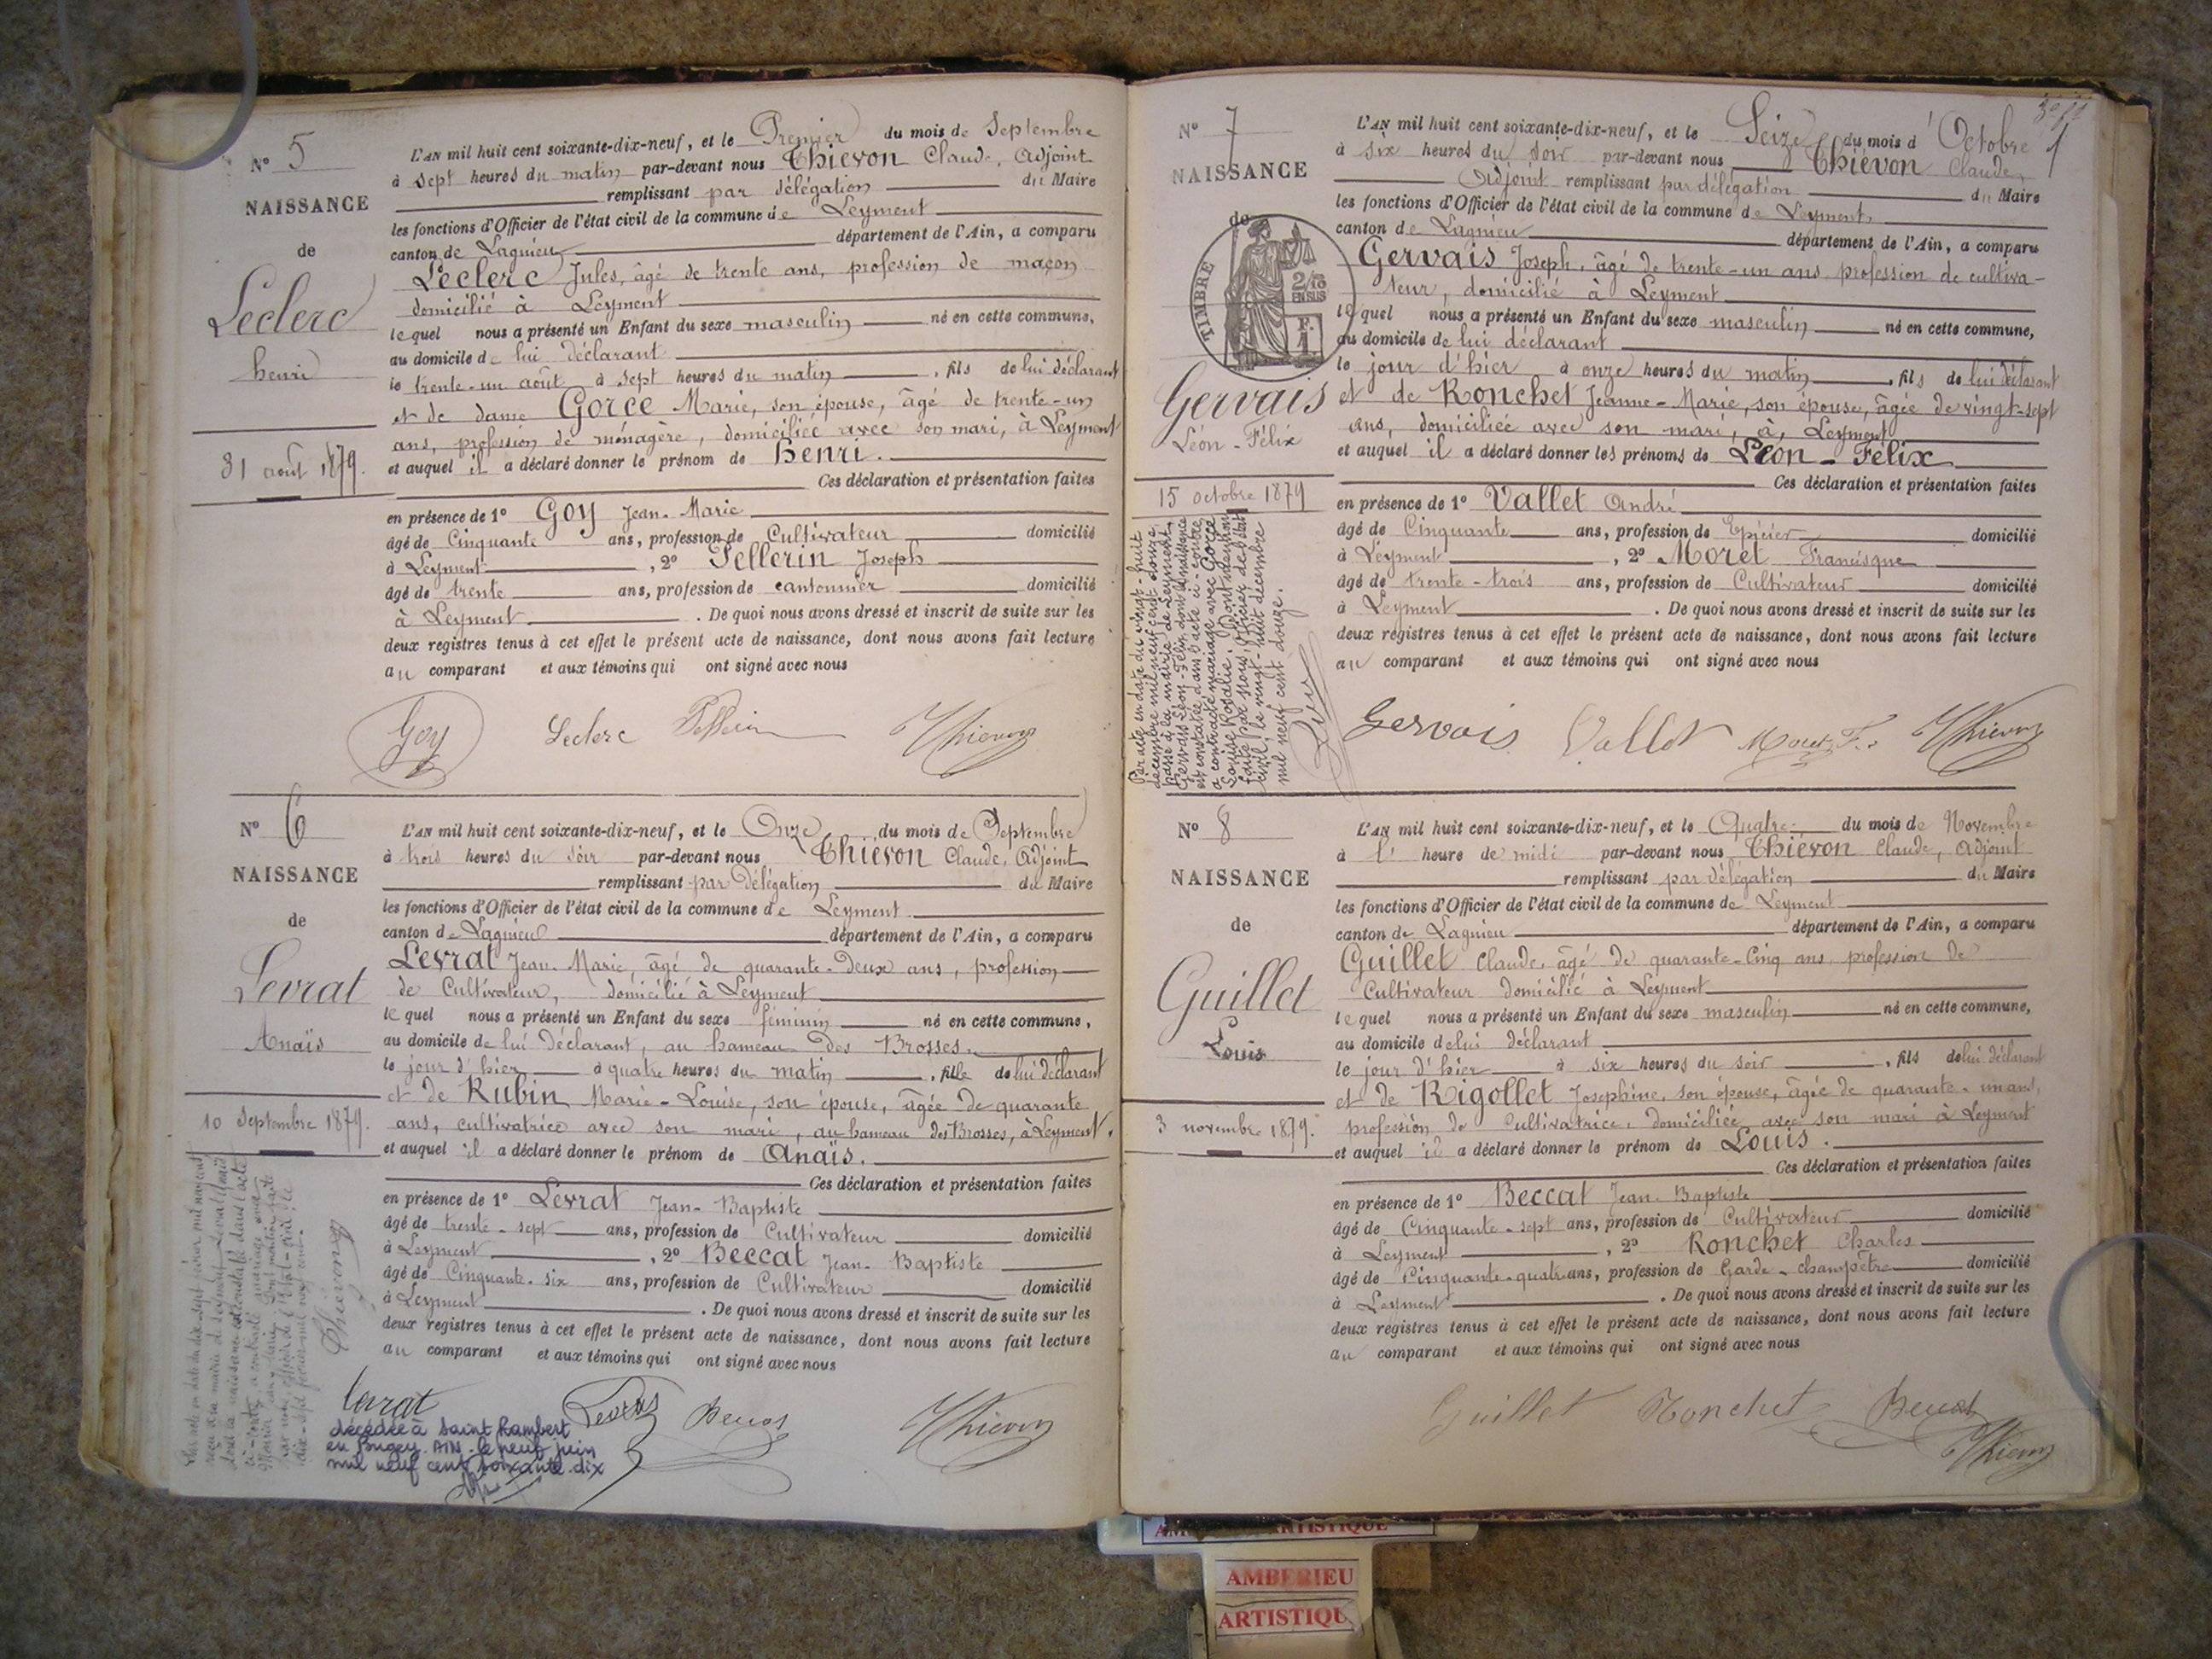 N° 5
NAISSANCE
de
Leclerc
henri
31 août 1879.
L'AN mil huit cent soixante-dix-neuf, et le Premier du mois de Septembre
à sept heures du matin par-devant nous Thiévon Claude, Adjoint
remplissant par délégation du Maire
les fonctions d'Officier de l'état civil de la commune de Leyment
canton de Lagnieu département de l'Ain, a comparu
Leclerc Jules, âgé de trente ans, profession de maçon
domicilié à Leyment
lequel nous a présenté un Enfant du sexe masculin né en cette commune,
au domicile de lui déclarant
le trente-un août à sept heures du matin, fils de lui déclarant
et de dame Gorce Marie, son épouse, âgé de trente-un
ans, profession de ménagère, domiciliée avec son mari, à Leyment
et auquel il a déclaré donner le prénom de henri.
Ces déclaration et présentation faites
en présence de 1° Goy Jean-Marie
âgé de Cinquante ans, profession de Cultivateur domicilié
à Leyment, 2° Pellerin Joseph
âgé de trente ans, profession de cantonnier domicilié
à Leyment. De quoi nous avons dressé et inscrit de suite sur les
deux registres tenus à cet effet le présent acte de naissance, dont nous avons fait lecture
au comparant et aux témoins qui ont signé avec nous
Goy Leclerc Pellerin Thiévon
N° 6
NAISSANCE
de
Levrat
Anaïs
10 Septembre 1879.
L'AN mil huit cent soixante-dix-neuf, et le Onze du mois de Septembre
à trois heures du soir par-devant nous Thiévon Claude, Adjoint
remplissant par délégation du Maire
les fonctions d'Officier de l'état civil de la commune de Leyment
canton de Lagnieu département de l'Ain, a comparu
Levrat Jean-Marie, âgé de quarante-deux ans, profession
de Cultivateur, domicilié à Leyment
lequel nous a présenté un Enfant du sexe féminin né en cette commune,
au domicile de lui déclarant, au hameau des Brosses.
le jour d'hier à quatre heures du matin, fille de lui déclarant
et de Rubin Marie-Louise, son épouse, âgée de quarante
ans, cultivatrice avec son mari, au hameau des Brosses, à Leyment.
et auquel il a déclaré donner le prénom de Anaïs.
Ces déclaration et présentation faites
en présence de 1° Levrat Jean-Baptiste
âgé de trente-sept ans, profession de Cultivateur domicilié
à Leyment, 2° Beccat Jean-Baptiste
âgé de Cinquante-six ans, profession de Cultivateur domicilié
à Leyment. De quoi nous avons dressé et inscrit de suite sur les
deux registres tenus à cet effet le présent acte de naissance, dont nous avons fait lecture
au comparant et aux témoins qui ont signé avec nous
Levrat Levrat Beccat Thiévon
décédée à Saint Rambert
en Bugey. AIN. le neuf juin
mil neuf cent soixante.dix
N° 7
NAISSANCE
de
TIMBRE
2/10
EN SUS
F.
1
Gervais
Léon-Félix
15 octobre 1879
Par acte en date du vingt-huit
décembre mil neuf cent douze,
passé à la mairie de Leyment,
Gervais Léon-Félix dont la naissance
est constatée dans l'acte ci-contre,
a contracté mariage avec Gorce
Louise Rosalie. Dont mention
faite par Nous, Officier de l'état
civil, le vingt-huit décembre
mil neuf cent douze.
L'AN mil huit cent soixante-dix-neuf, et le Seize du mois d'Octobre
à six heures du soir par-devant nous Thiévon Claude,
Adjoint remplissant par délégation du Maire
les fonctions d'Officier de l'état civil de la commune de Leyment
canton de Lagnieu département de l'Ain, a comparu
Gervais Joseph, âgé de trente-un ans profession de cultiva-
teur, domicilié à Leyment
lequel nous a présenté un Enfant du sexe masculin né en cette commune,
au domicile de lui déclarant
le jour d'hier à onze heures du matin, fils de lui déclarant
et de Ronchet Jeanne-Marie, son épouse, âgée de vingt-sept
ans, domiciliée avec son mari, à Leyment
et auquel il a déclaré donner les prénoms de Léon-Félix
Ces déclaration et présentation faites
en présence de 1° Vallet André
âgé de Cinquante ans, profession de Epicier domicilié
à Leyment, 2° Moret Francisque
âgé de trente-trois ans, profession de Cultivateur domicilié
à Leyment. De quoi nous avons dressé et inscrit de suite sur les
deux registres tenus à cet effet le présent acte de naissance, dont nous avons fait lecture
au comparant et aux témoins qui ont signé avec nous
Gervais Vallet Moret F. Thiévon
N° 8
NAISSANCE
de
Guillet
Louis
3 novembre 1879.
L'AN mil huit cent soixante-dix-neuf, et le Quatre du mois de Novembre
à l'heure de midi par-devant nous Thiévon Claude, Adjoint
remplissant par délégation du Maire
les fonctions d'Officier de l'état civil de la commune de Leyment
canton de Lagnieu département de l'Ain, a comparu
Guillet Claude, âgé de quarante-Cinq ans, profession de
Cultivateur domicilié à Leyment
lequel nous a présenté un Enfant du sexe masculin né en cette commune,
au domicile de lui déclarant
le jour d'hier à six heures du soir, fils de lui déclarant
et de Rigollet Josephine, son épouse, âgée de quarante-un ans,
profession de Cultivatrice, domiciliée avec son mari à Leyment
et auquel il a déclaré donner le prénom de Louis.
Ces déclaration et présentation faites
en présence de 1° Beccat Jean-Baptiste
âgé de Cinquante-sept ans, profession de Cultivateur domicilié
à Leyment, 2° Ronchet Charles
âgé de Cinquante-quatre ans, profession de Garde-champêtre domicilié
à Leyment. De quoi nous avons dressé et inscrit de suite sur les
deux registres tenus à cet effet le présent acte de naissance, dont nous avons fait lecture
au comparant et aux témoins qui ont signé avec nous
Guillet Ronchet Beccat Thiévon
AMBERIEU
ARTISTIQUE